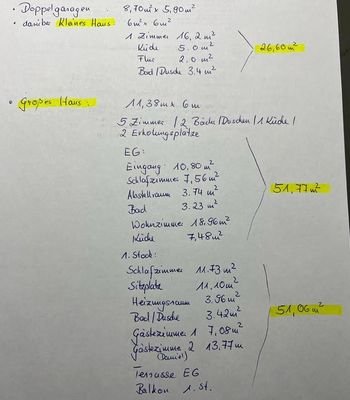 • Doppelgaragen 8,70m² x 5,90m²
• darüber Kleines Haus: 6m² x 6m²
1 Zimmer 16,2 m²
Küche 5.0 m²
Flur 2.0 m²
Bad/Dusche 3.4 m²
26,60 m²
• Großes Haus: 11,38m x 6m
5 Zimmer / 2 Bäder/Duschen / 1 Küche /
2 Erholungsplätze
EG:
Eingang: 10,80 m²
Schlafzimmer 7,56 m²
Abstellraum 3.74 m²
Bad 3.23 m²
Wohnzimmer 18.96 m²
Küche 7,48 m²
51,77 m²
1. Stock:
Schlafzimmer 11.73 m²
Sitzplatz 11,10 m²
Heizungsraum 3.96 m²
Bad/Dusche 3.42 m²
Gästezimmer 1 7,08 m²
Gästezimmer 2 13,77 m
(Daniel)
51,06 m²
Terrasse EG
Balkon 1. St.